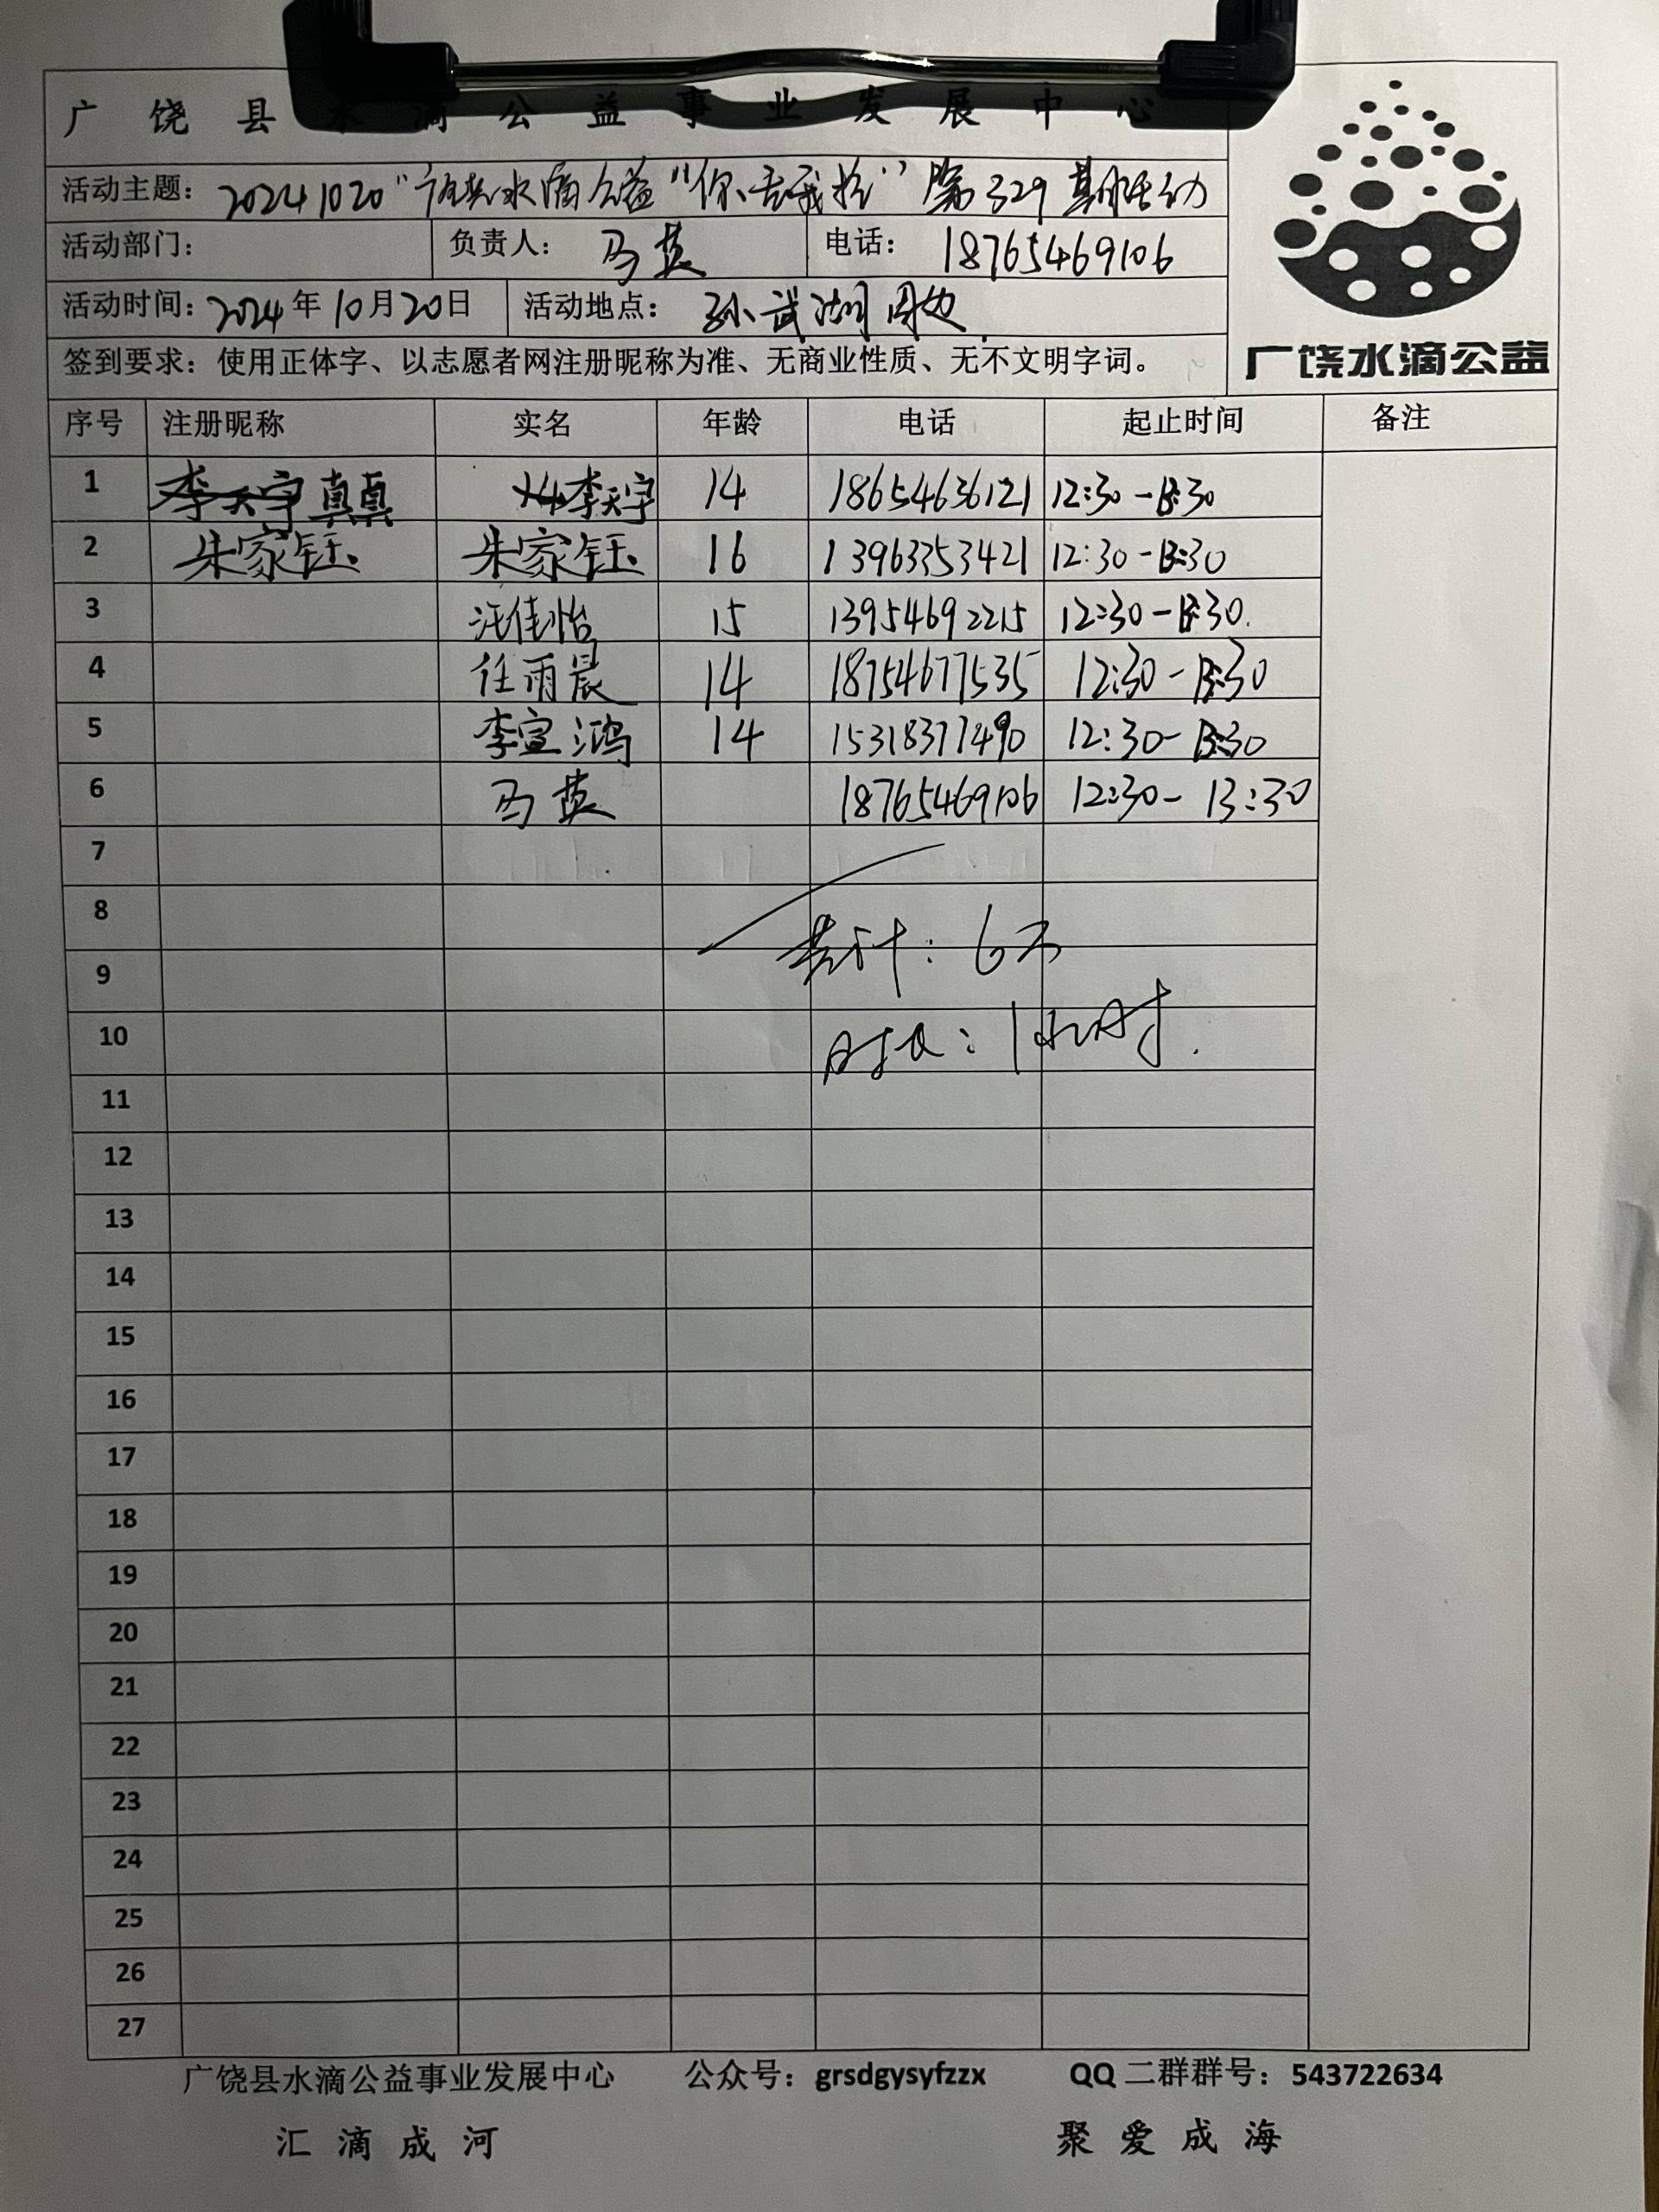 广饶县水滴公益事业发展中心
活动主题：20241020"广饶水滴公益"你丢我捡"第329期活动
活动部门： 负责人：马英 电话：18765469106
活动时间：2024年10月20日 活动地点：孙武湖周边
签到要求：使用正体字、以志愿者网注册昵称为准、无商业性质、无不文明字词。
广饶水滴公益
序号 注册昵称 实名 年龄 电话 起止时间 备注
1 李天宇 真真 李天宇 14 18654636121 12:30-13:30
2 朱家钰 朱家钰 16 13963353421 12:30-13:30
3 汪佳怡 15 13954692215 12:30-13:30.
4 任雨晨 14 18754677535 12:30-13:30
5 李宣鸿 14 15318377490 12:30-13:30
6 马英 18765469106 12:30-13:30
7
8
共计：6人
9
10
时长：1小时.
11
12
13
14
15
16
17
18
19
20
21
22
23
24
25
26
27
广饶县水滴公益事业发展中心 公众号：grsdgysyfzzx QQ二群群号：543722634
汇滴成河 聚爱成海